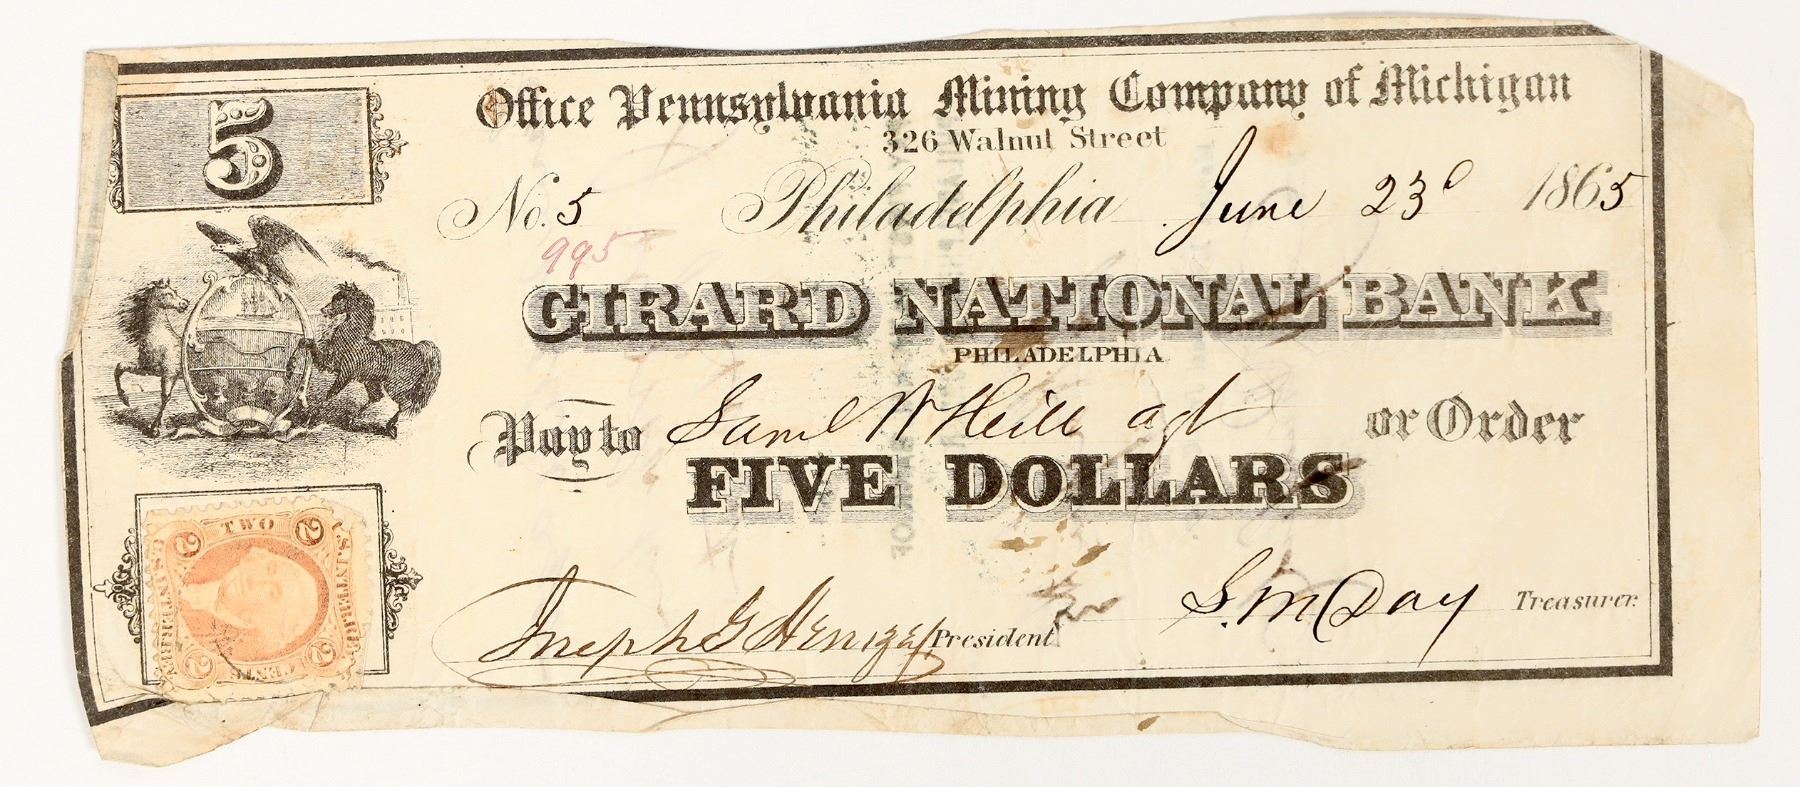 5
Office Pennsylvania Mining Company of Michigan
326 Walnut Street
No. 5 Philadelphia June 23d 1865
995
GIRARD NATIONAL BANK
PHILADELPHIA
Pay to Saml W Hill agt or Order
FIVE DOLLARS
U.S. INTER. REV.
TWO
2 2
2 2
CENTS
Joseph G Henszey President
S. M Day Treasurer